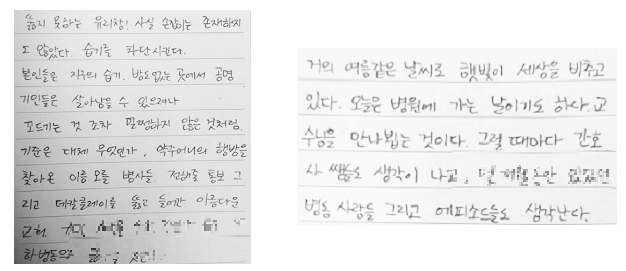 뚫지 못하는 유리창! 사실 손잡이는 존재하지
도 않았다. 습기를 차단시킨다.
본인들은 지구의 습기. 밤도없는 곳에서 공명
기인들은 살아남을 수 있으려나
꼬드기는 것 조차 멀쩡하지 않은 것처럼.
기준은 대체 무엇인가, 약주머니의 행방을
찾아온 이름 모를 병사들. 전화를 통보 그
리고 데칼플레이를 뚫고 들어간 아름다운
교회
하병동으로
거의 여름같은 날씨로 햇빛이 세상을 비추고
있다. 오늘은 병원에 가는 날이기도 하다. 교
수님을 만나뵙는 것이다. 그럴 때마다 간호
사 쌤들도 생각이 나고,
병동 사람들 그리고 에피소드들도 생각난다.